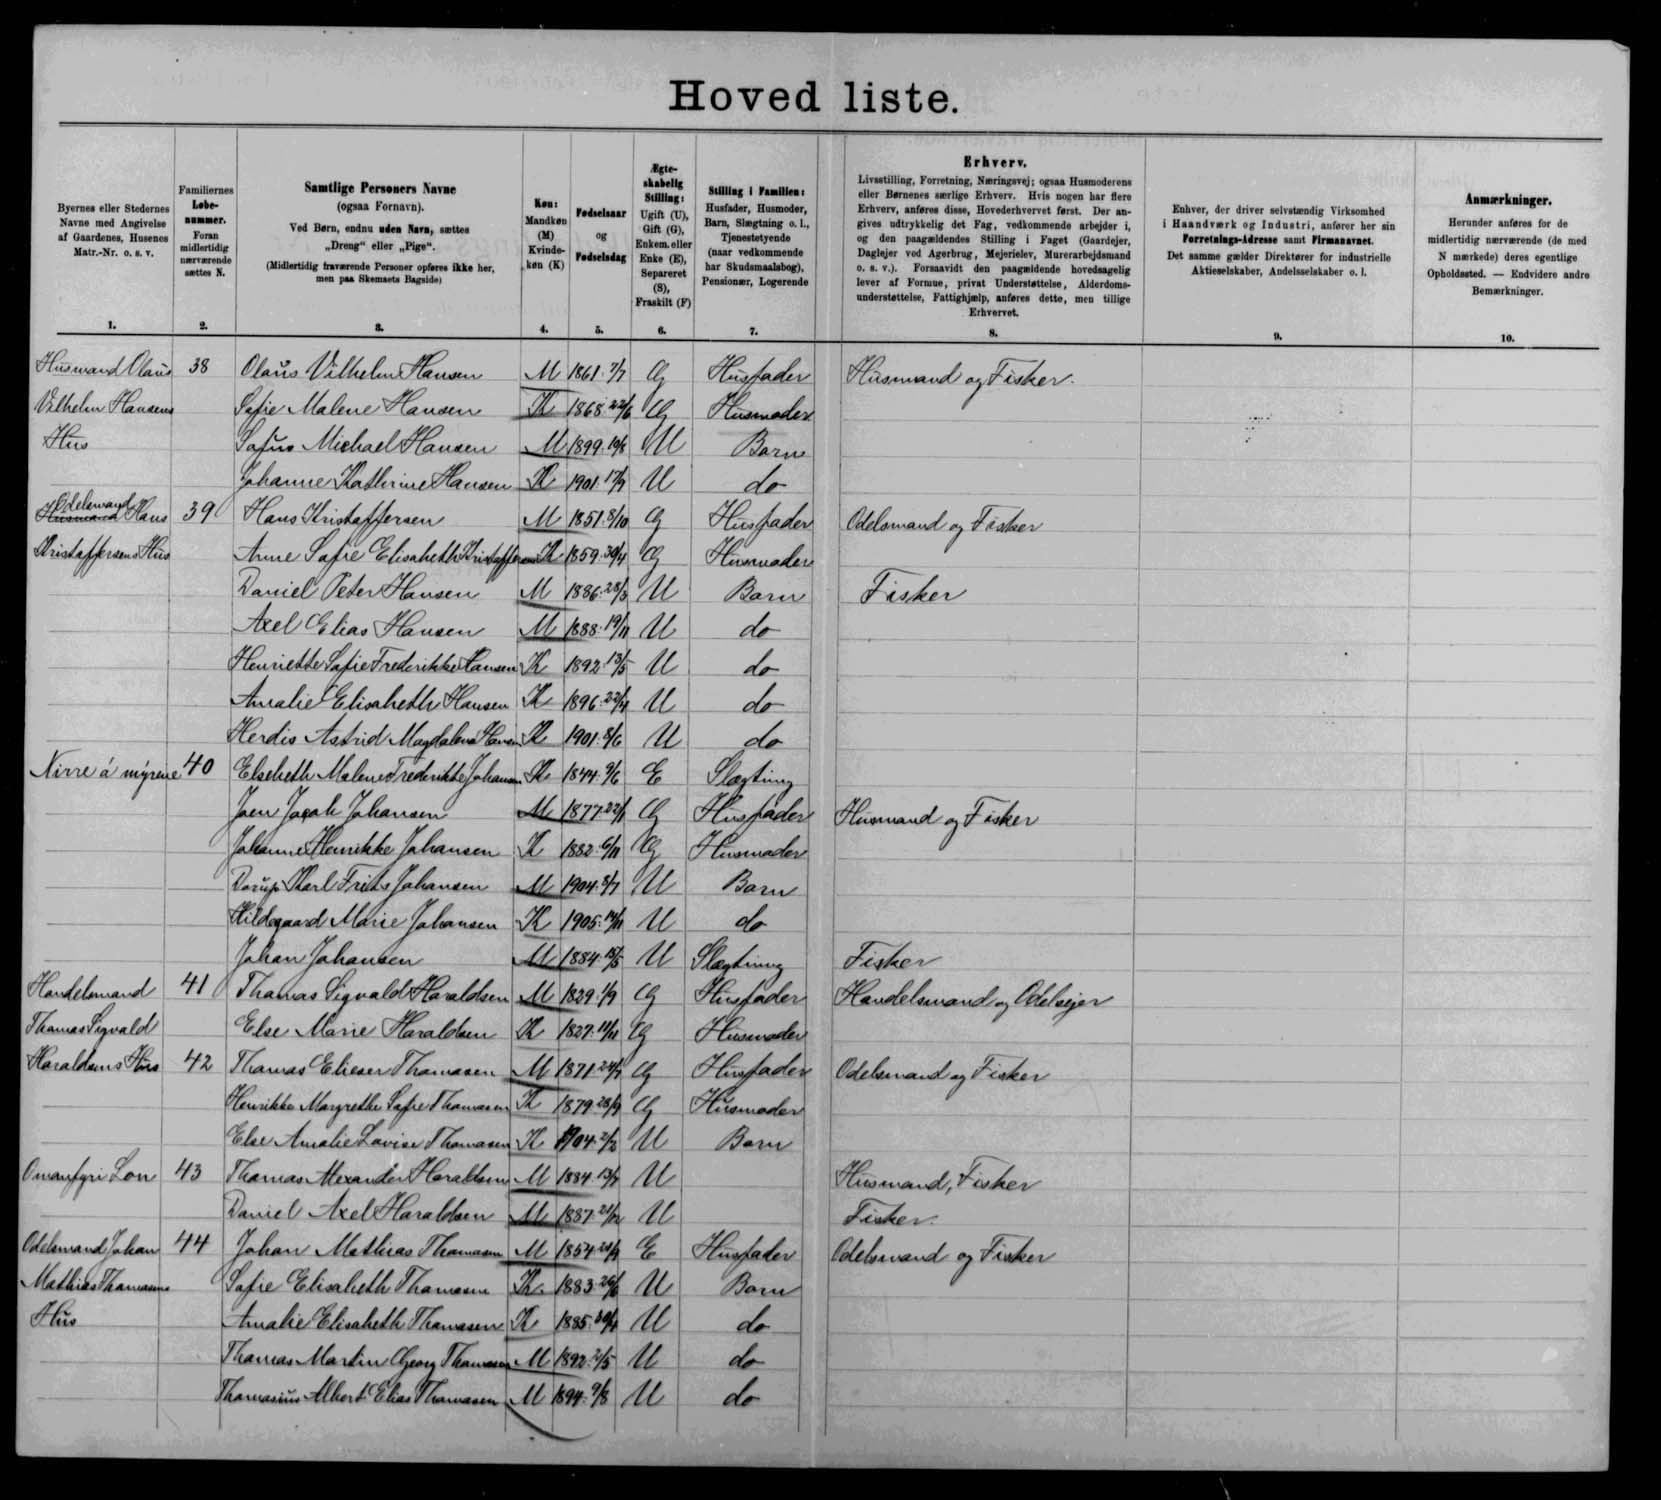 Hovedliste.
Byernes eller Stedernes
Navne med Angivelse
af Gaardenes, Husenes
Matr.-Nr. o. s. v.
1.
Familiernes
Løbe-
nummer.
Foran
midlertidig
nærværende
sættes N.
2.
Samtlige Personers Navne
(ogsaa Fornavn).
Ved Børn, endnu uden Navn, sættes
„Dreng“ eller „Pige“.
(Midlertidig fraværende Personer opføres ikke her,
men paa Skemaets Bagside)
3.
Køn:
Mandkøn
(M)
Kvinde-
køn (K)
4.
Fødselsaar
og
Fødselsdag
5.
Ægte-
skabelig
Stilling:
Ugift (U),
Gift (G),
Enkem. eller
Enke (E),
Separeret
(S),
Fraskilt (F)
6.
Stilling i Familien:
Husfader, Husmoder,
Barn, Slægtning o. l.,
Tjenestetyende
(naar vedkommende
har Skudsmaalsbog),
Pensionær, Logerende
7.
Erhverv.
Livsstilling, Forretning, Næringsvej; ogsaa Husmoderens
eller Børnenes særlige Erhverv. Hvis nogen har flere
Erhverv, anføres disse, Hovederhvervet først. Der an-
gives udtrykkelig det Fag, vedkommende arbejder i,
og den paagældendes Stilling i Faget (Gaardejer,
Daglejer ved Agerbrug, Mejerielev, Murerarbejdsmand
o. s. v.). Forsaavidt den paagældende hovedsagelig
lever af Formue, privat Understøttelse, Alderdoms-
understøttelse, Fattighjælp, anføres dette, men tillige
Erhvervet.
8.
Enhver, der driver selvstændig Virksomhed
i Haandværk og Industri, anfører her sin
Forretnings-Adresse samt Firmanavnet.
Det samme gælder Direktører for industrielle
Aktieselskaber, Andelsselskaber o. l.
9.
Anmærkninger.
Herunder anføres for de
midlertidig nærværende (de med
N mærkede) deres egentlige
Opholdssted. — Endvidere andre
Bemærkninger.
10.
Husmand Olaus 38 Olaus Vilhelm Hansen M 1861 7/7 G Husfader Husmand og Fisker.
Vilhelm Hansens Sofie Malene Hansen K 1868 22/6 G Husmoder
Hus Sofus Michael Hansen M 1899 19/8 U Barn
Johanne Kathrine Hansen K 1901 17/7 U do
Odelsmand
Husmand Hans 39 Hans Kristoffersen M 1851 8/10 G Husfader Odelsmand og Fisker
Kristoffersens Hus Anne Sofie Elisabeth Kristoffersen K 1859 30/4 G Husmoder
Daniel Peter Hansen M 1886 28/3 U Barn Fisker
Axel Elias Hansen M 1888 19/11 U do
Henriette Sofie Frederikke Hansen K 1892 13/5 U do
Amalie Elisabeth Hansen K 1896 22/4 U do
Herdis Astrid Magdalena Hansen K 1901 8/6 U do
Nirre á mýrene 40 Elsebeth Malene Frederikke Johansen K 1844 9/6 E Slægtning
Joen Jacob Johansen M 1877 22/1 G Husfader Husmand og Fisker
Johanne Henrikke Johansen K 1882 6/11 G Husmoder
Karl Frits Johansen M 1904 8/7 U Barn
Hildegaard Marie Johansen K 1905 14/11 U do
Johan Johansen M 1884 15/5 U Slægtning Fisker
Handelsmand 41 Thomas Sigvald Haraldsen M 1829 1/9 G Husfader Handelsmand og Odelsejer
Thomas Sigvald Else Marie Haraldsen K 1827 11/11 G Husmoder
Haraldsens Hus 42 Thomas Elieser Thomasen M 1871 24/7 G Husfader Odelsmand og Fisker
Henrikke Margrethe Sofie Thomasen K 1879 28/9 G Husmoder
Else Amalie Lovise Thomasen K 1904 2/2 U Barn
43 Thomas Alexander Haraldsen M 1884 13/7 U Husmand, Fisker
Daniel Axel Haraldsen M 1887 21/12 U Fisker.
Odelsmand Johan 44 Johan Mathias Thomasen M 1854 E Husfader Odelsmand og Fisker
Mathias Thomasens Sofie Elisabeth Thomasen K. 1883 26/6 U Barn
Hus Amalie Elisabeth Thomasen K 1885 U do
Thomas Martin Georg Thomasen M 1892 2/5 U do
Thomasius Albert Elias Thomasen M 1894 9/8 U do